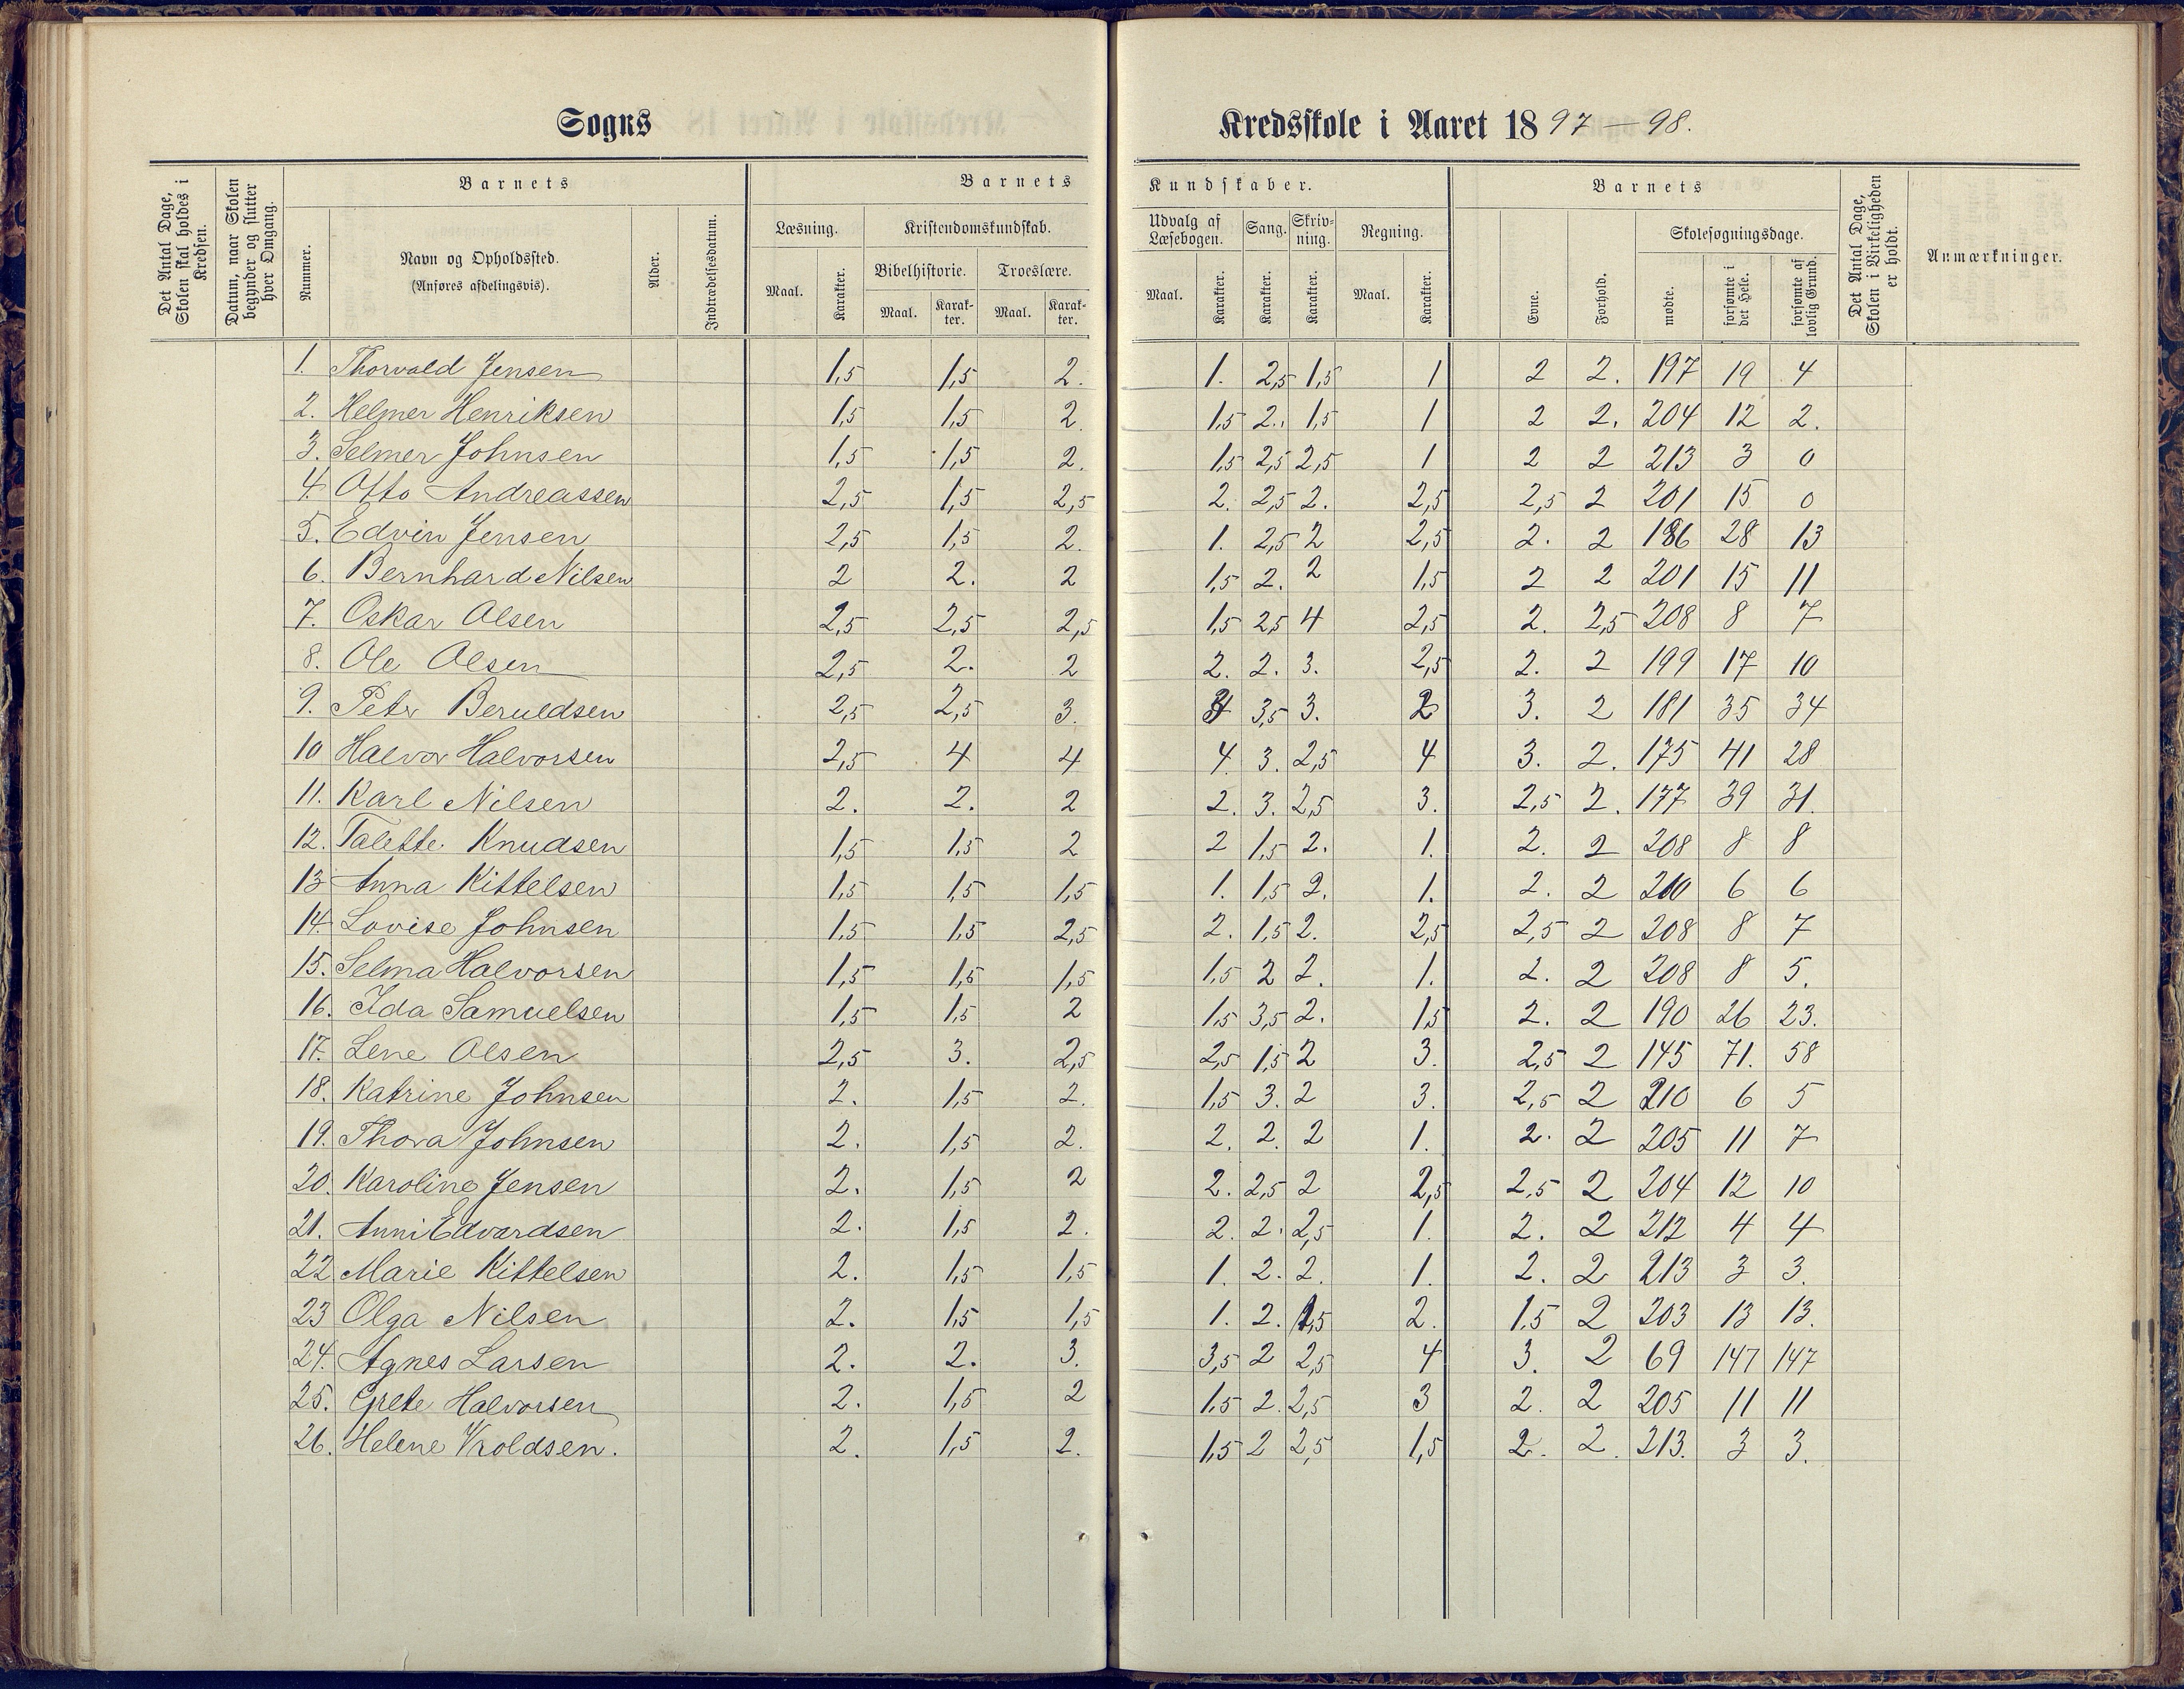 Sogns
Kredsskole i Aaret 1897–98.
Det Antal Dage, Skolen skal holdes i Kredsen.
Datum, naar Skolen begynder og slutter hver Omgang.
Barnets
Nummer.
Navn og Opholdssted.
(Anføres afdelingsvis).
Alder.
Indtrædelsesdatum.
Barnets
Læsning.
Maal.
Karakter.
Kristendomskundskab.
Bibelhistorie.
Maal.
Karakter.
Troeslære.
Maal.
Karakter.
Kundskaber.
Udvalg af Læsebogen.
Maal.
Karakter.
Sang.
Karakter.
Skrivning.
Karakter.
Regning.
Maal.
Karakter.
Barnets
Evne.
Forhold.
Skolesøgningsdage.
mødte.
forsømte i det Hele.
forsømte af lovlig Grund.
Det Antal Dage, Skolen i Virkeligheden er holdt.
Anmærkninger.
1. Thorvald Jensen 1,5 1,5 2. 1. 2,5 1,5 1 2 2. 197 19 4
2. Helmer Henriksen 1,5 1,5 2. 1,5 2. 1,5 1 2 2. 204 12 2.
3. Selmer Johnsen 1,5 1,5 2. 1,5 2,5 2,5 1 2 2 213 3 0
4. Otto Andreassen 2,5 1,5 2,5 2. 2,5 2. 2,5 2,5 2 201 15 0
5. Edvin Jensen 2,5 1,5 2. 1. 2,5 2 2,5 2. 2 186 28 13
6. Bernhard Nilsen 2 2. 2 1,5 2. 2 1,5 2 2 201 15 11
7. Oskar Olsen 2,5 2,5 2,5 1,5 2,5 4 2,5 2. 2,5 208 8 7
8. Ole Olsen 2,5 2. 2 2. 2. 3. 2,5 2. 2 199 17 10
9. Peter Beruldsen 2,5 2,5 3. 3,5 3. 2 3. 2 181 35 34
10 Halvor Halvorsen 2,5 4 4 4. 3. 2,5 4 3. 2. 175 41 28
11. Karl Nilsen 2. 2. 2 2. 3. 2,5 3. 2,5 2. 177 39 31.
12. Talette Knudsen 1,5 1,5 2 2 1,5 2. 1. 2. 2 208 8 8
13 Anna Kittelsen 1,5 1,5 1,5 1. 1,5 2. 1. 2. 2 210 6 6
14. Lovise Johnsen 1,5 1,5 2,5 2. 1,5 2. 2,5 2,5 2 208 8 7
15. Selma Halvorsen 1,5 1,5 1,5 1,5 2 2. 1. 2. 2 208 8 5.
16. Ida Samuelsen 1,5 1,5 2 1,5 3,5 2. 1,5 2. 2 190 26 23.
17. Lene Olsen 2,5 3. 2,5 2,5 1,5 2 3. 2,5 2 145 71. 58
18. Katrine Johnsen 2. 1,5 2. 1,5 3. 2 3. 2,5 2 210 6 5
19. Thora Johnsen 2. 1,5 2. 2. 2. 2 1. 2. 2 205 11 7
20. Karoline Jensen 2. 1,5 2 2. 2,5 2 2,5 2,5 2 204 12 10
21. Anni Edvardsen 2. 1,5 2. 2. 2. 2,5 1. 2. 2 212 4 4
22 Marie Kittelsen 2. 1,5 1,5 1. 2. 2. 1. 2. 2 213 3 3.
23 Olga Nilsen 2. 1,5 1,5 1. 2. 1,5 2. 1,5 2 203 13 13.
24. Agnes Larsen 2. 2. 3. 3,5 2 2,5 4 3. 2 69 147 147
25. Grete Halvorsen 2. 1,5 2 1,5 2. 2,5 3 2. 2 205 11 11
26. Helene Vroldsen. 2. 1,5 2. 1,5 2 2,5 1,5 2. 2. 213. 3 3.